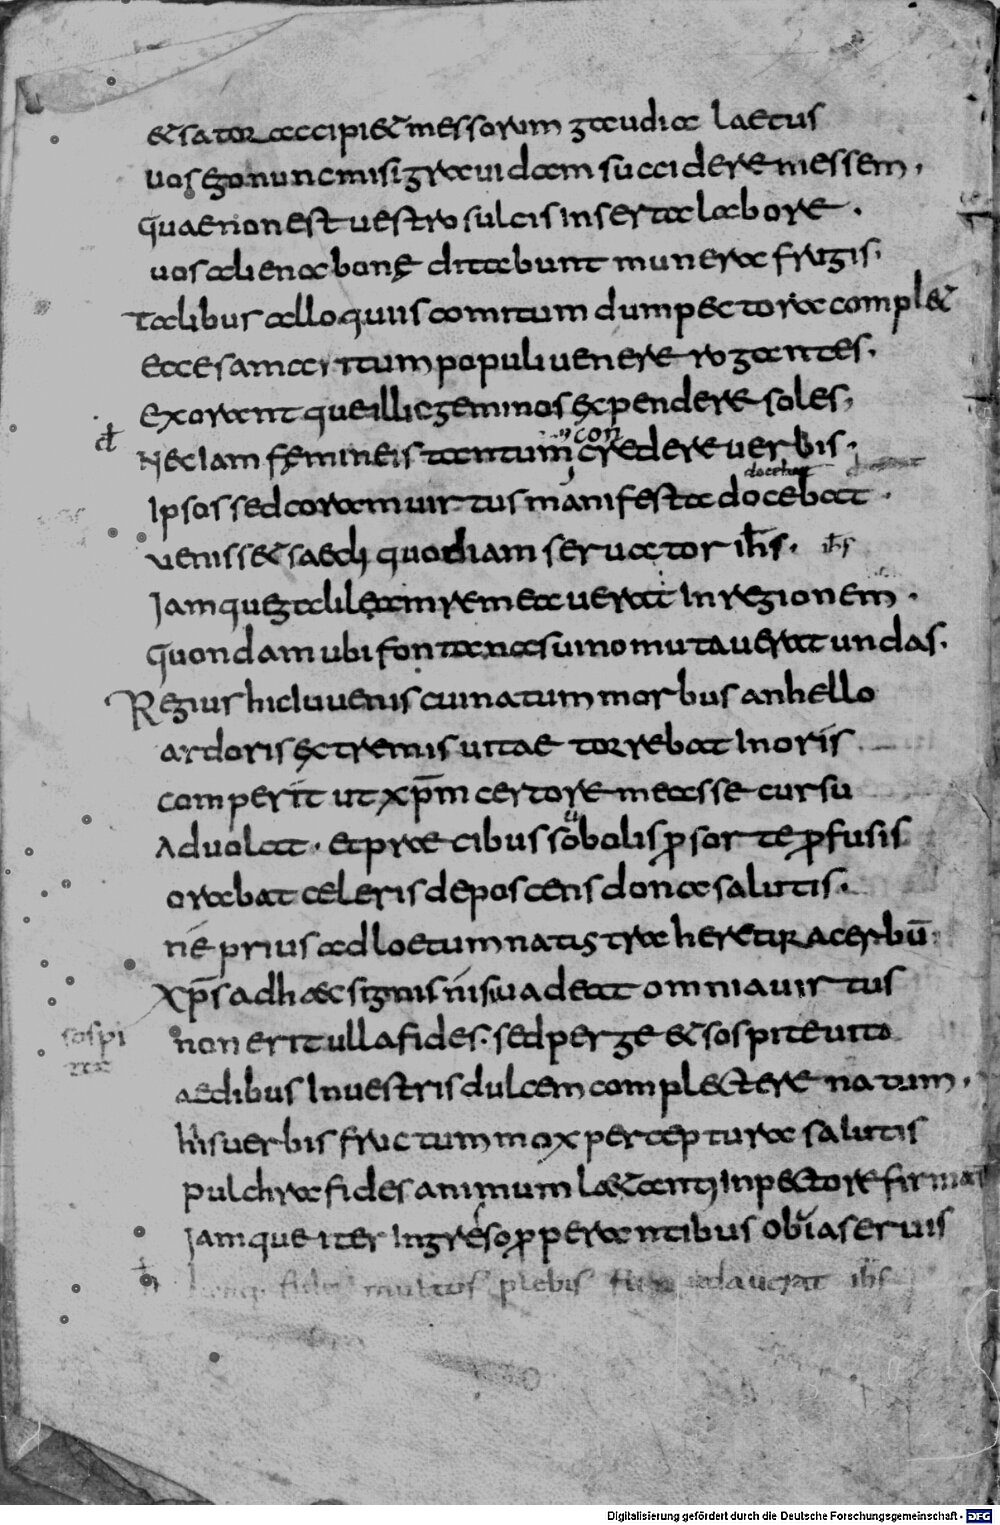 &sator accipi& messorum gaudia laetus
uos ego nunc misi grauidam succidere messem.
quae non est uestro sulcis inserta labore.
uos alienae bonę ditabunt munera frugis.
Talibus alloquiis comitum dum pectora compl&
Ecce samaritum populi uenere rogantes.
Exorant que illic geminos ęxpendere soles.
con
Nec Iam fęmineis tantum credere uerbis.
docebat
Ipsos sed coram uirtus manifesta docebat.
ueniss& saecli quod iam seruator ihs. ihs
Iamque galileam remeauerat In regionem.
quondam ubi fontanas uino mutauerat undas.
Regius hic Iuuenis cui natum morbus anhello
ardoris ęxtremis uitae torrebat In oris
comperit ut xpm certo remeasse cursu
Aduolat. et prae cibus sobolis p sorte pfusis
orabat celeris deposcens dona salutis.
ne prius ad loetum natis traheretur acerbū.
xps adhaec signis nisi uadeat omnia uirtus
non erit ulla fides. sed perge & sospite uita
sospi
tta
aedibus In uestris dulcem complectere natum.
his uerbis fructum mox perceptura salutis
pulchra fides animum laetanti In pectore firmat
Iamque iter Ingreso pperantibus obuia seruis
multos plebis adauxrat ihs
Digitalisierung gefördert durch die Deutsche Forschungsgemeinschaft - DFG